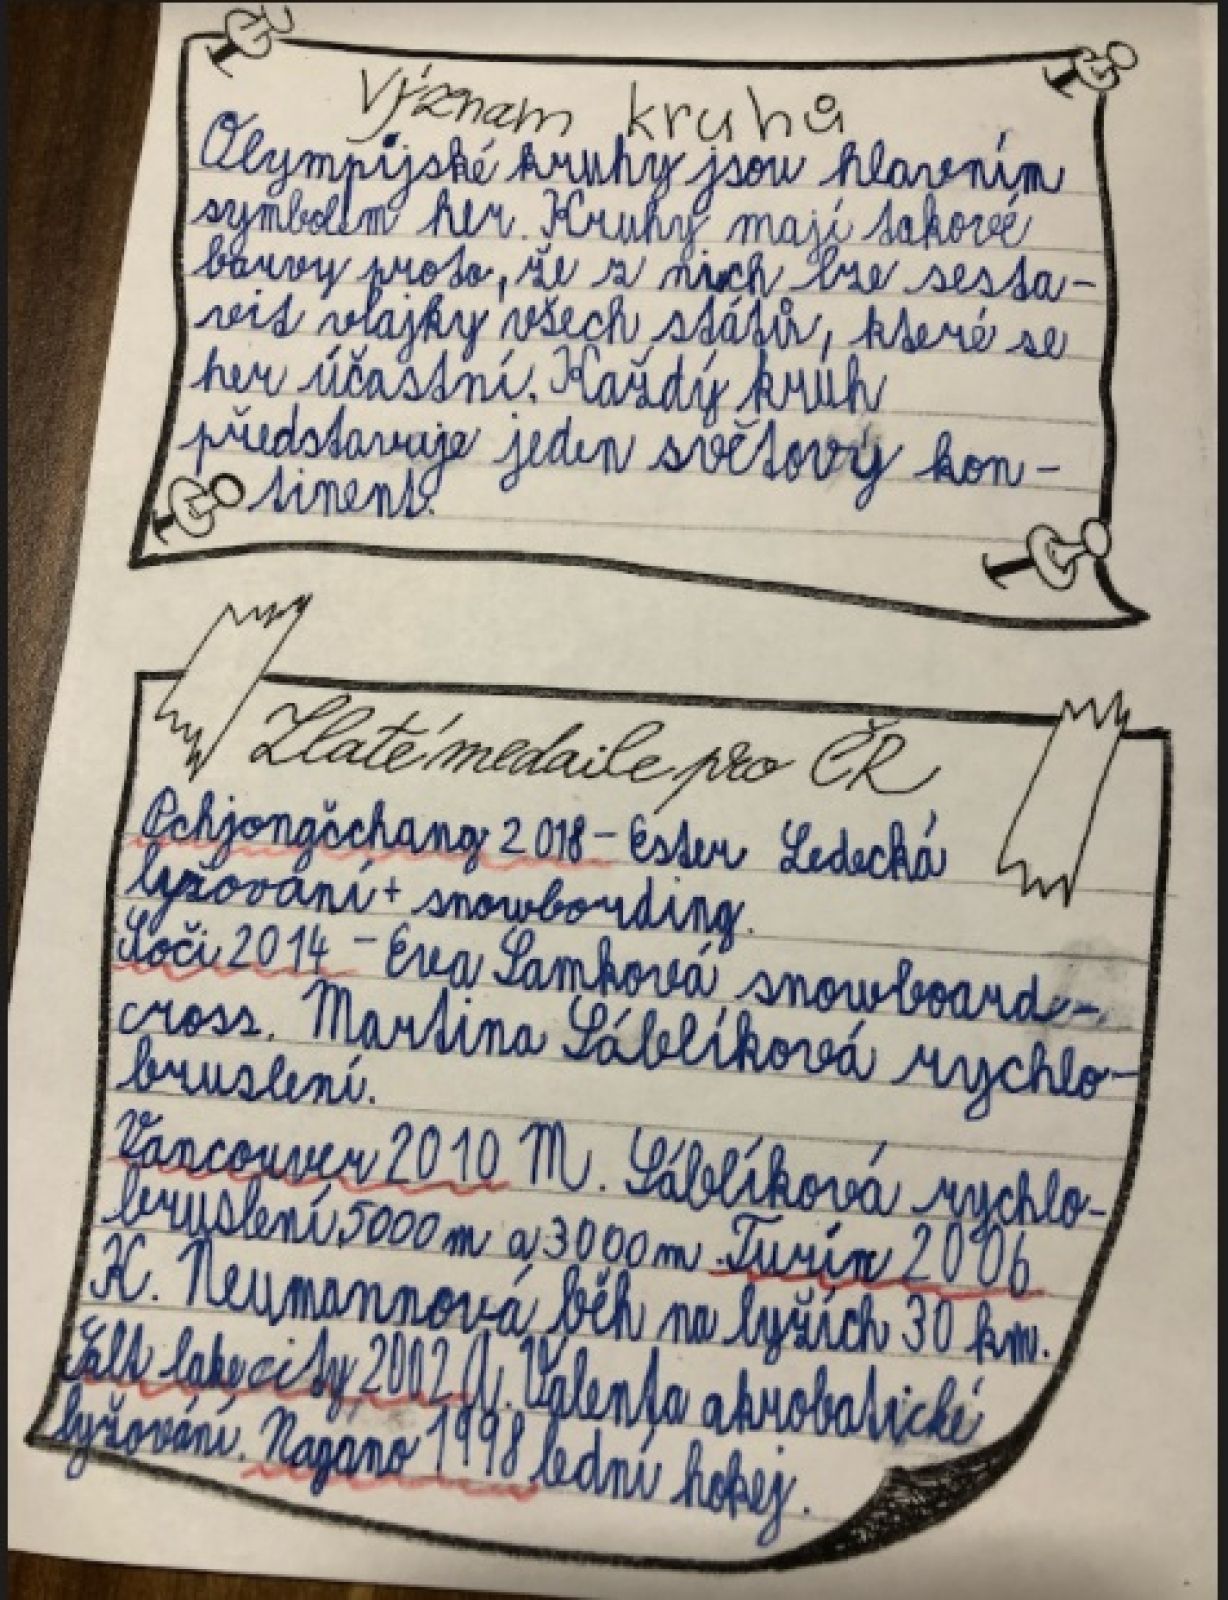 Význam kruhů
Olympijské kruhy jsou hlavním
symbolem her. Kruhy mají takové
barvy proto, že z nich lze sesta-
vit vlajky všech států, které se
her účastní. Každý kruh
představuje jeden světový kon-
tinent.
Zlaté medaile pro ČR
Pchjongčchang 2018 - Ester Ledecká
lyžování + snowbording.
Soči 2014 - Eva Samková snowboard-
cross. Martina Sáblíková rychlo-
bruslení.
Vancouver 2010 M. Sáblíková rychlo-
bruslení 5000 m a 3000 m. Turín 2006
K. Neumannová běh na lyžích 30 km.
Salt lake city 2002 A. Valenta akrobatické
lyžování. Nagano 1998 lední hokej.